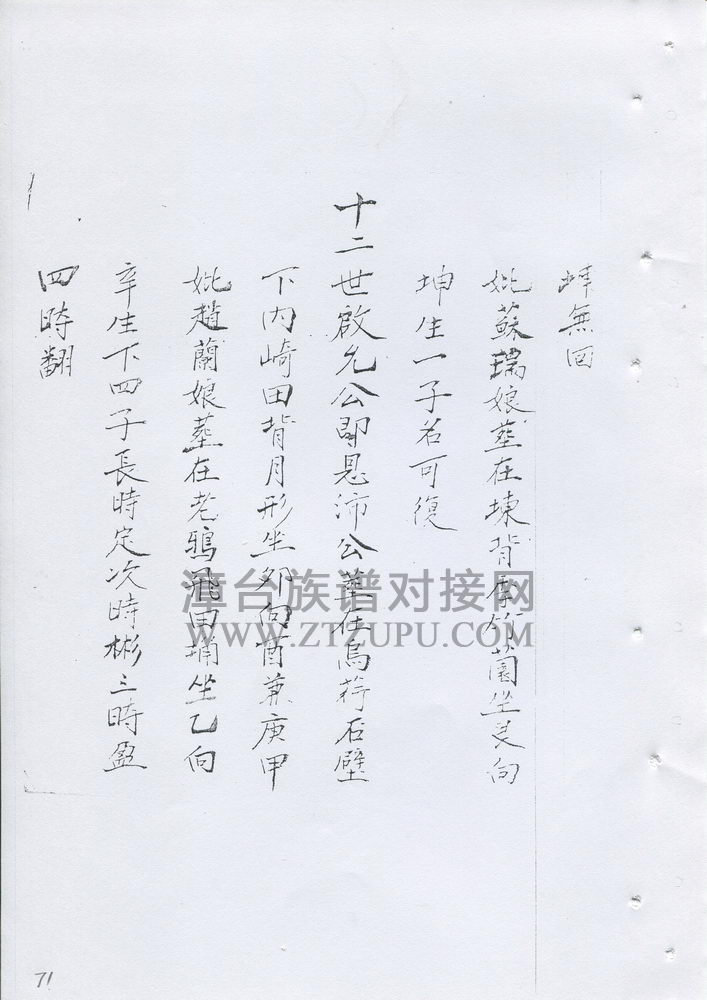 墳無回
妣蘇瑞娘葬在埬背 坐艮向
坤生一子名可復
十二世啟允公即恩沛公葬在烏 石壁
下內崎田背月形坐卯向酉兼庚甲
妣趙蘭娘葬在老鴉飛田埔坐乙向
辛生下四子長時定次時彬三時盈
四時翻
漳台族谱对接网
WWW.ZTZUPU.COM
71